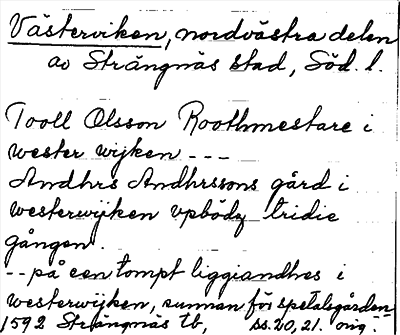 Västerviken, nordvästra delen
av Strängnäs stad, Söd. l.
Tooll Olsson Roothmestare i
wester wijken ---
Andhrs Andhrssons gård i
westerwijken vpbödz tridie
gången.
-- på een tompt liggiandhes i
westerwijken, sunnan för spetalsgården
1592 Strängnäs tb, ss. 20, 21. orig.